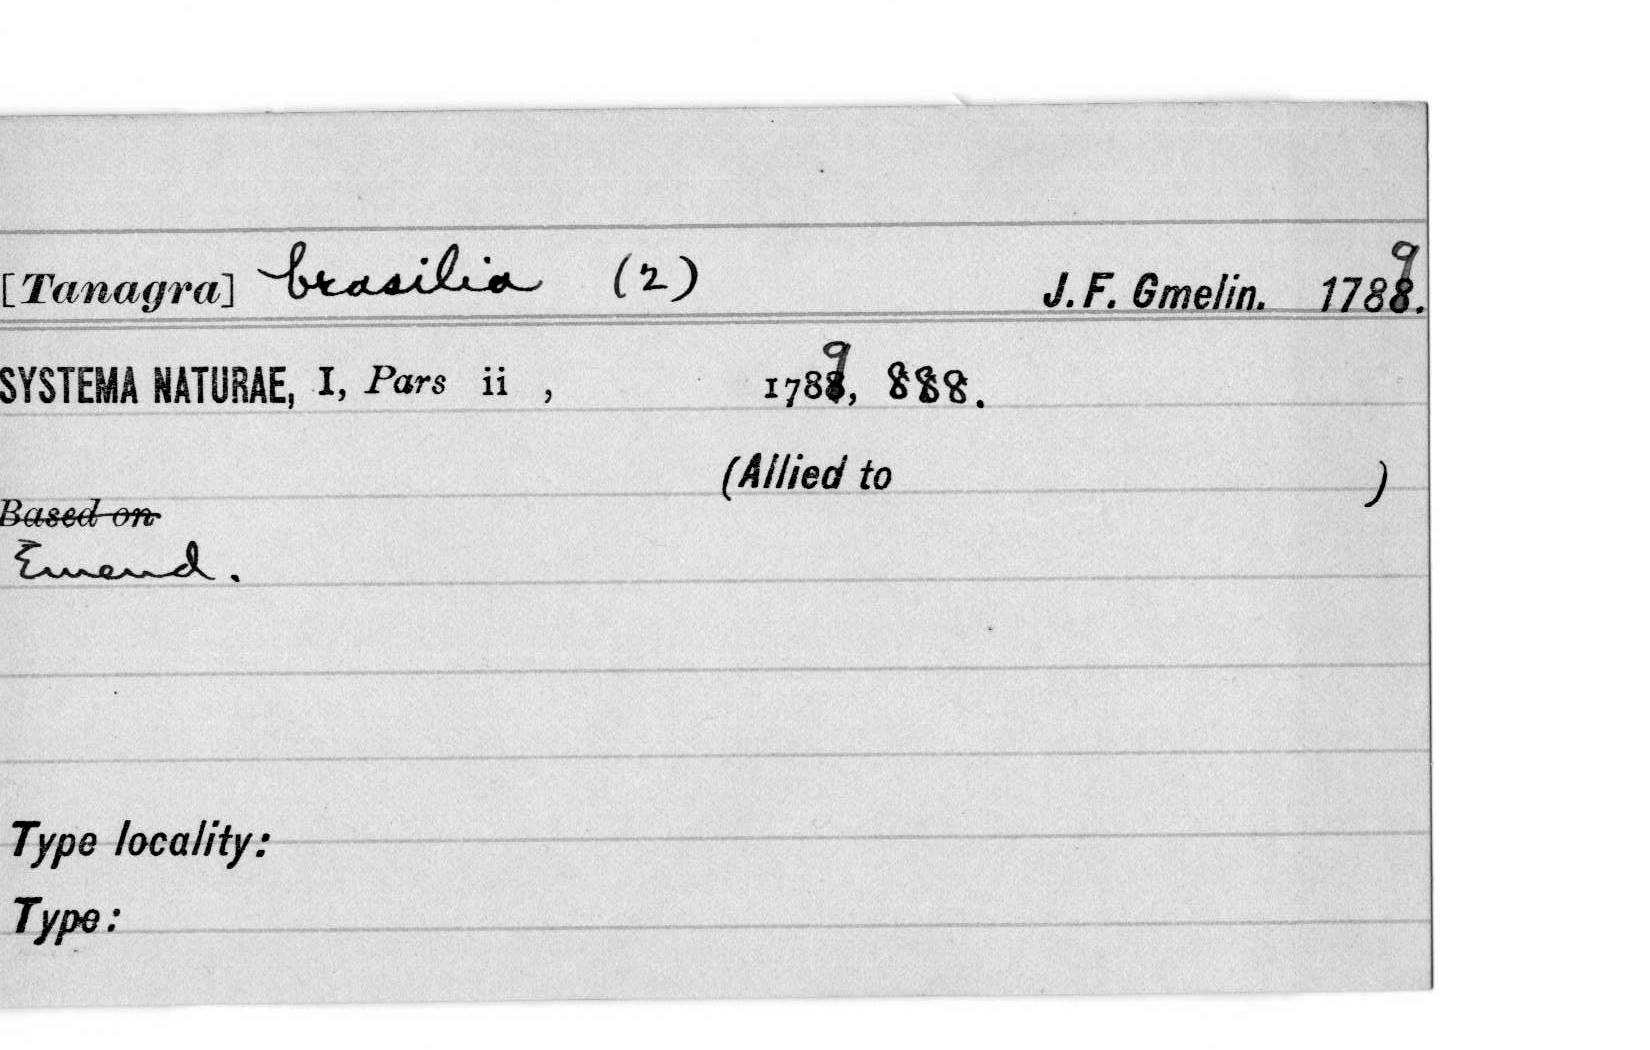 [Tanagra] brasilia (2) J. F. Gmelin. 1789.
SYSTEMA NATURAE, I, Pars ii , 1789, 888.
(Allied to )
Based on
Emend.
Type locality:
Type: